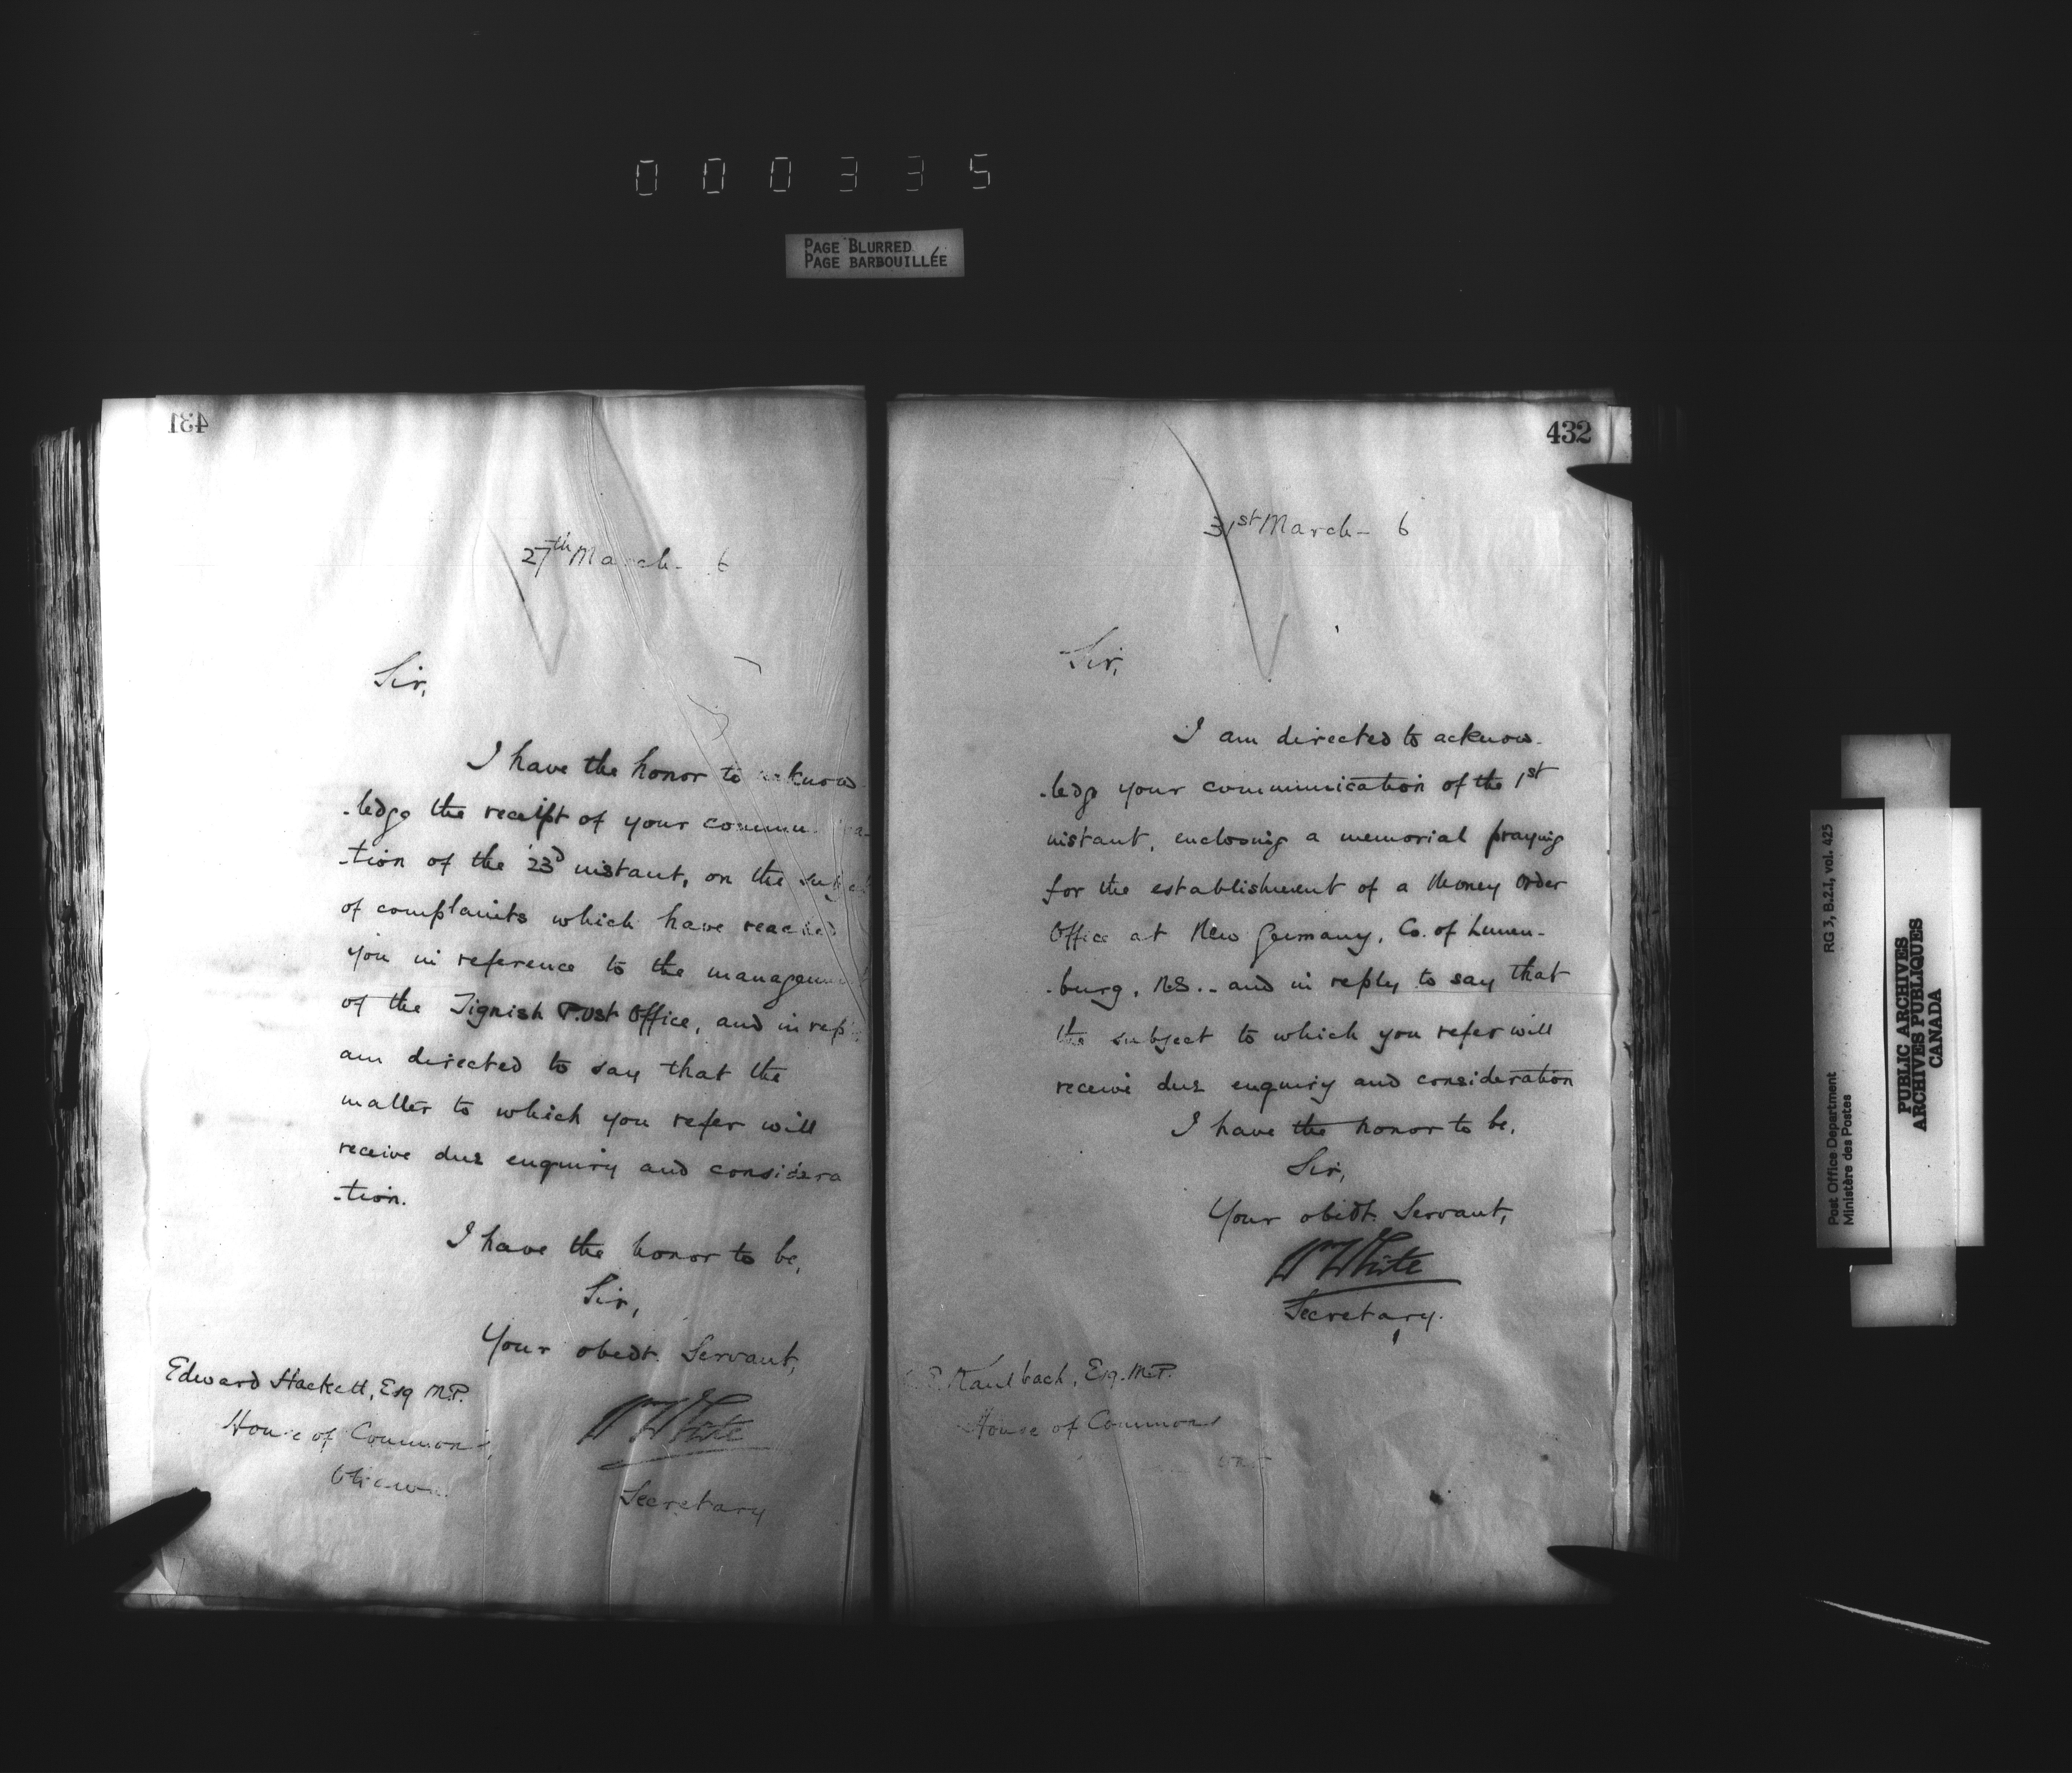 000335
PAGE BLURRED
PAGE BARBOUILLÉE
431
27th March - 6
Sir,
I have the honor to acknow
-ledge the receipt of your commu
-tion of the 23d instant, on the subject
of complaints which have reached
you in reference to the management
of the Tignish Post Office, and in reply
am directed to say that the
matter to which you refer will
receive due enquiry and considera
-tion.
I have the honor to be,
Sir,
Your obedt. Servant,
WWhite
Secretary
Edward Hackett, Esq M.P.
House of Commons,
Ottawa.
432
31st March - 6
Sir,
I am directed to acknow-
-ledge your communication of the 1st
instant, enclosing a memorial praying
for the establishment of a Money Order
Office at New Germany, Co. of Lunen-
-burg, N.S. - and in reply to say that
the subject to which you refer will
receive due enquiry and consideration
I have the honor to be,
Sir,
Your obedt. Servant,
WWhite
Secretary.
Kaulbach, Esq. M.P.
House of Commons
RG 3, B.2.1, vol. 425
Post Office Department
Ministère des Postes
PUBLIC ARCHIVES
ARCHIVES PUBLIQUES
CANADA